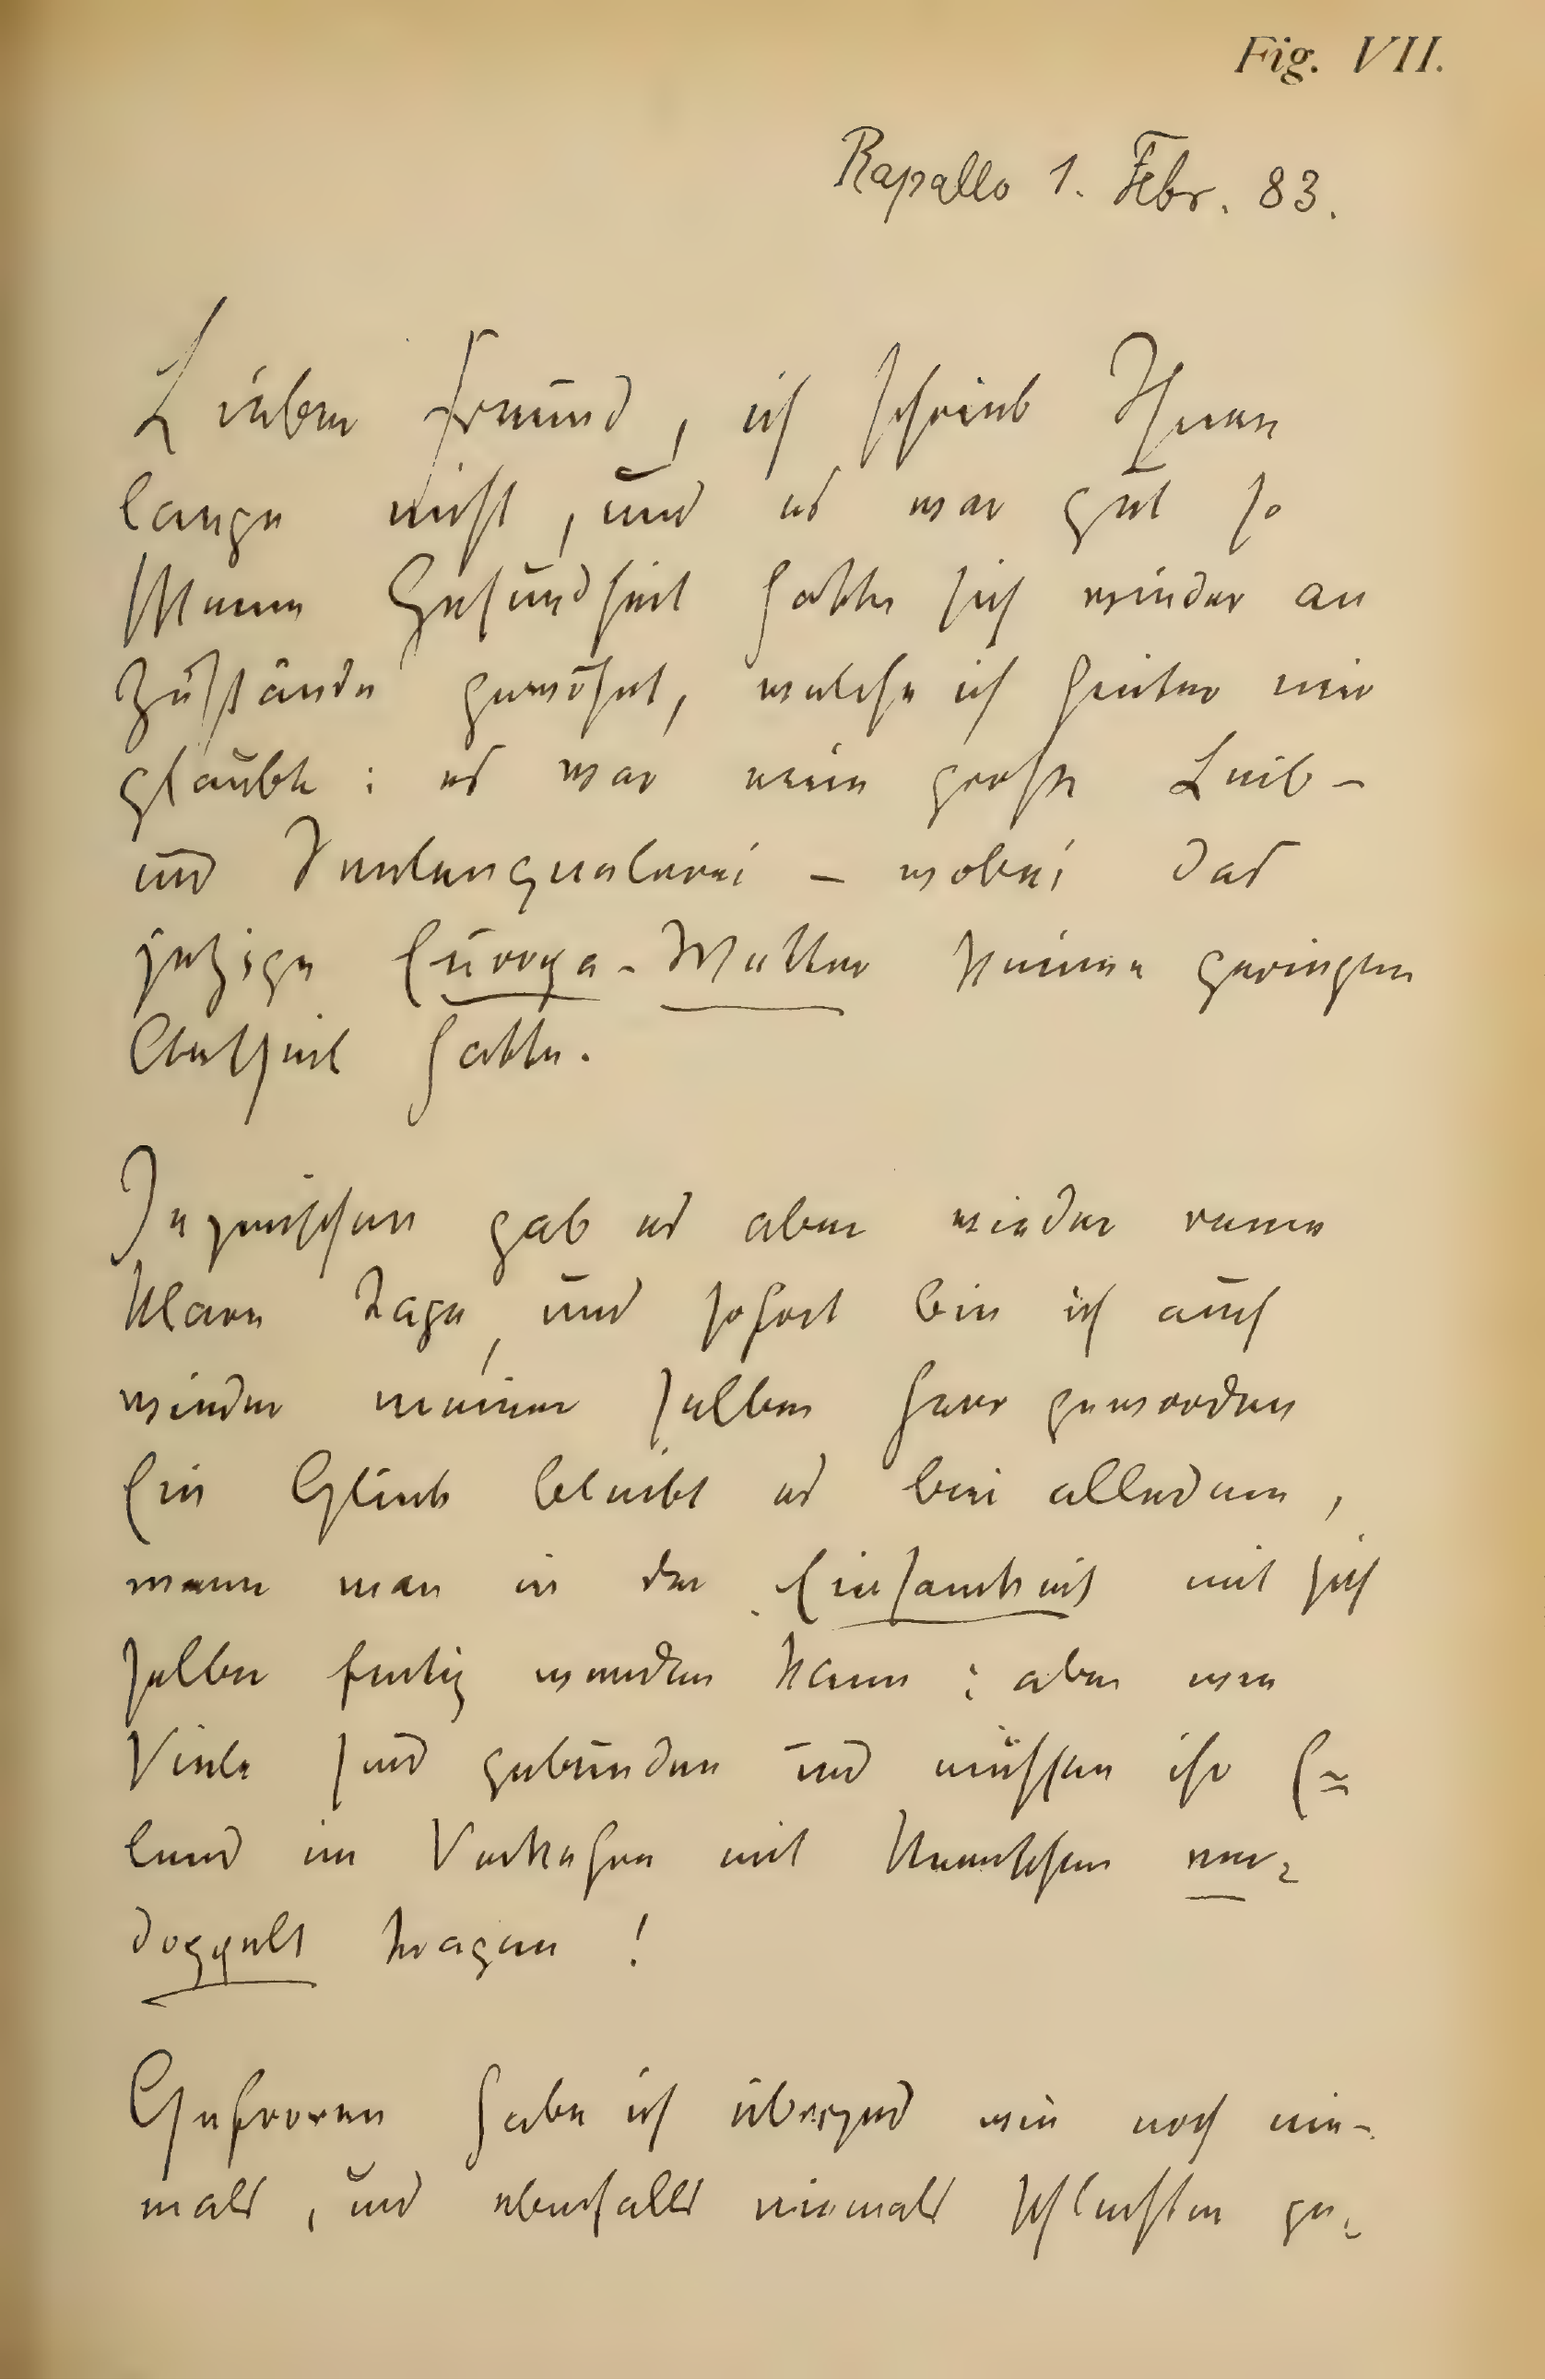 Fig. VII.
Rapallo 1. Febr. 83.
Lieber Freund, ich schrieb Ihnen
lange nicht, und es war gut so
Meine Gesundheit hatte sich wieder an
Zustände gewöhnt, welche ich hinter mir
glaubte: es war eine große Leib-
und Seelenquälerei – wobei das
jetzige Europa-Wetter keinen geringen
Antheil hatte.
Inzwischen gab es aber wieder reine
klare Tage, und sofort bin ich auch
wieder meiner selber Herr geworden
Ein Glück bleibt es bei alledem,
wenn man in der Einsamkeit mit sich
selber fertig werden kann: aber wie
Viele sind gebunden und müssen ihr E=
lend im Verkehre mit Menschen ver=
doppelt tragen!
Gefroren habe ich übrigens wie noch nie-
mals, und ebenfalls niemals schlechter ge=